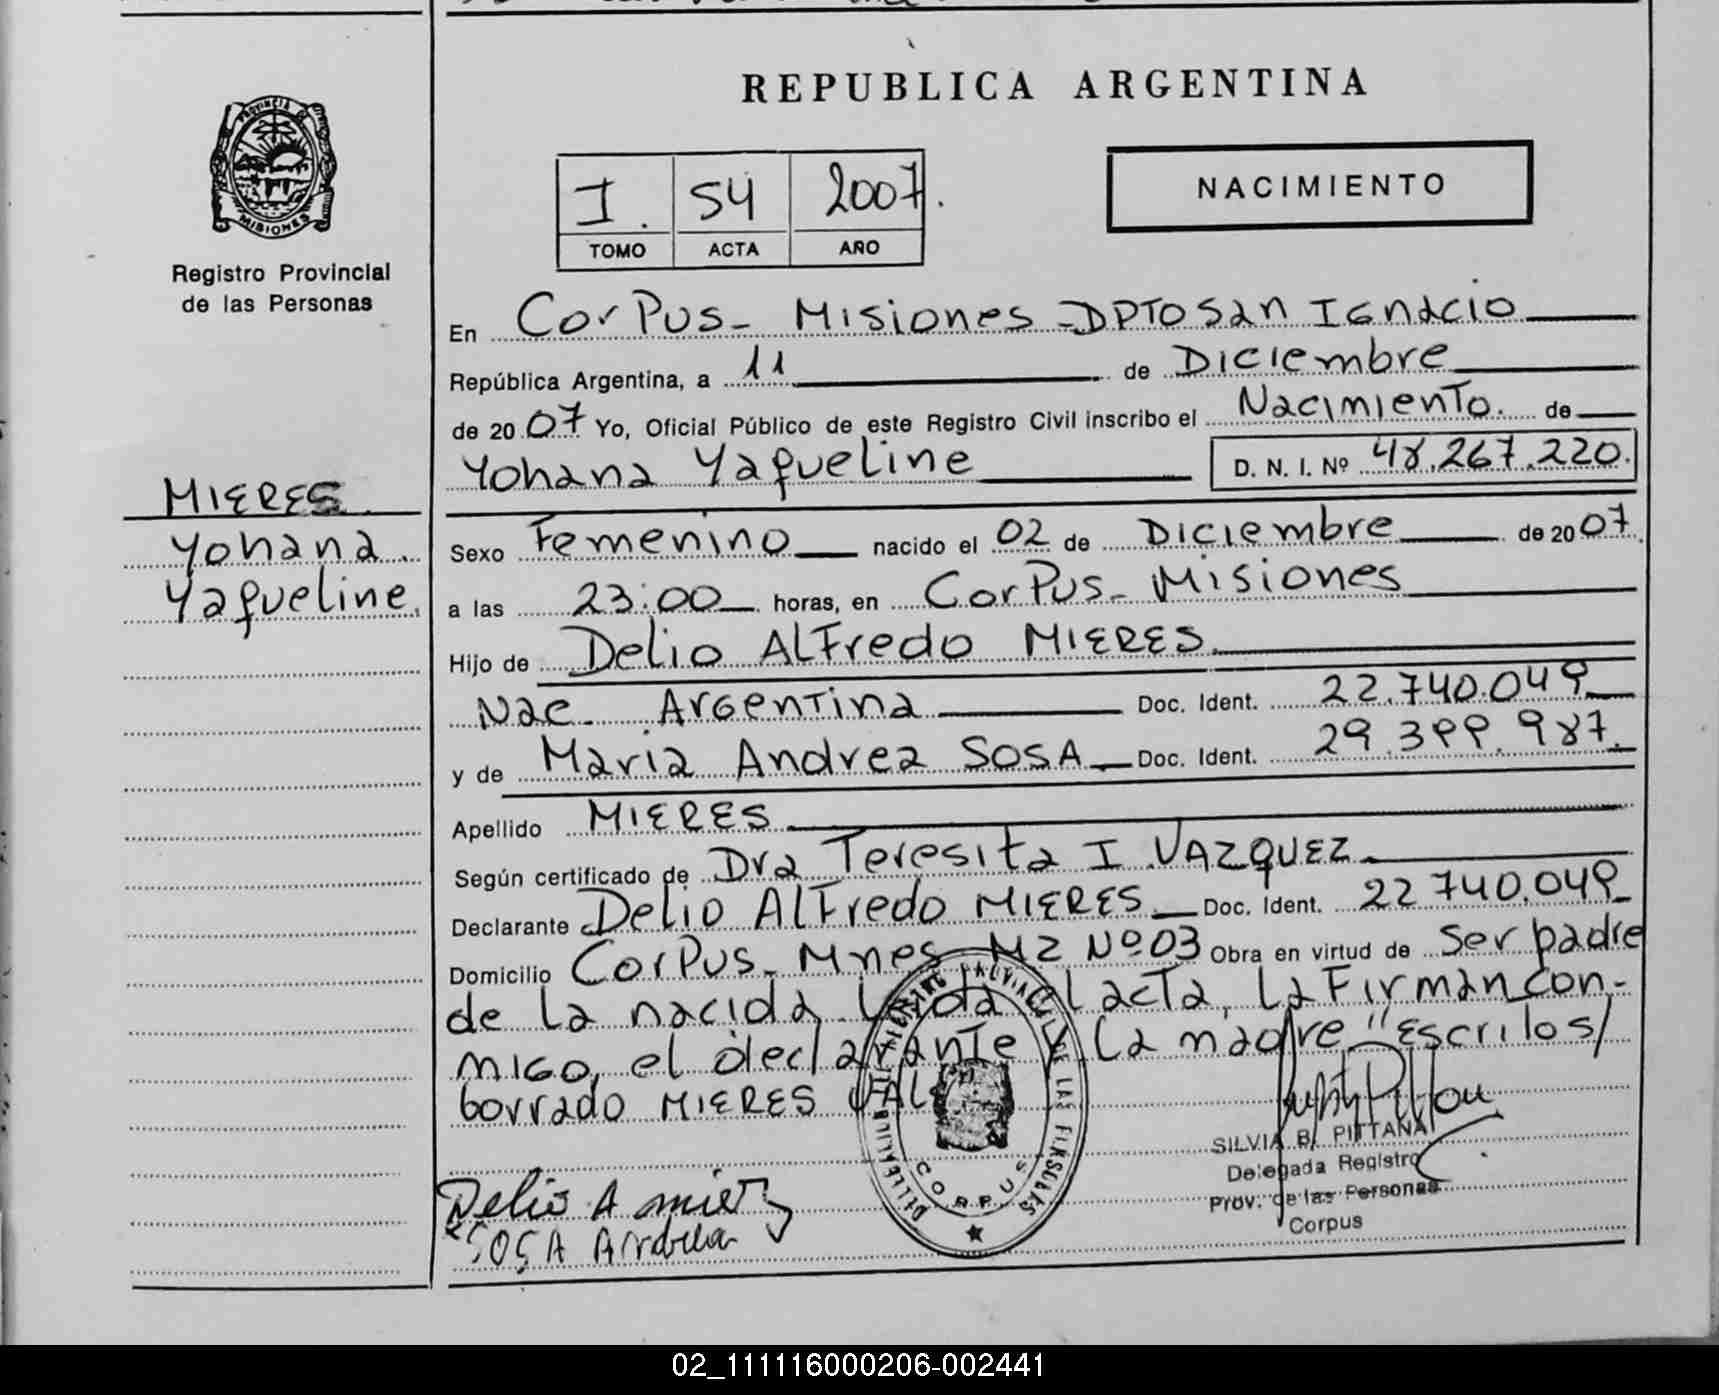 REPUBLICA ARGENTINA
PROVINCIA
MISIONES
Registro Provincial
de las Personas
I. 54 2007.
TOMO ACTA AÑO
NACIMIENTO
En Corpus - Misiones - DPTO San Ignacio
República Argentina, a 11 de Diciembre
de 2007 Yo, Oficial Público de este Registro Civil inscribo el Nacimiento. de
Yohana Yaqueline D. N. I. Nº 48.267.220.
MIERES
Yohana
Yaqueline
Sexo Femenino nacido el 02 de Diciembre de 2007
a las 23:00 horas, en Corpus - Misiones
Hijo de Delio Alfredo MIERES
Nac. Argentina Doc. Ident. 22.740.049
y de Maria Andrea SOSA Doc. Ident. 29.399.987.
Apellido MIERES
Según certificado de Dra Teresita I VAZQUEZ
Declarante Delio Alfredo MIERES Doc. Ident. 22 740.049
Domicilio Corpus - Mnes MZ Nº 03 Obra en virtud de Ser padre
de la nacida, el acta, la Firman con-
migo, el declarante y la madre "Escrilos/
borrado MIERES VALE
CORPUS
SILVIA B. PITTANA
Delegada Registro
Prov. de las Personas
Corpus
Delio A mierez
SOSA Andrea
02_111116000206-002441